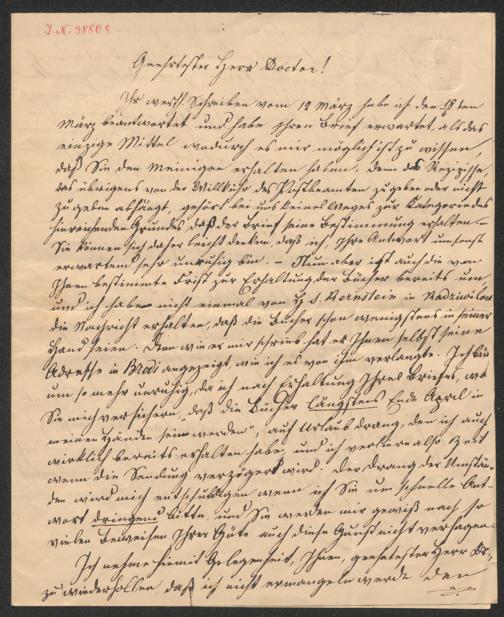 J. N. 98808
Geehrtester Herr Doctor!
Ihr werth. Schreiben vom 12 März habe ich den 18ten
März beantwortet und habe Ihren Brief erwartet, als das
einzige Mittel wodurch es mir möglich ist zu wissen,
daß Sie den Meinigen erhalten haben, denn das Rezipisse,
das übrigens von der Willkühr des Postbeamten zu geben oder nicht
zu geben abhängt, gehört bei uns keines Weges zur Kategorie des
hinreichenden Grundes daß der Brief seine Bestimmung erhalten. –
Sie können sich daher leicht denken, daß ich, Ihre Antwort umsonst
erwartend sehr unruhig bin. – Nun aber ist auch die von
Ihnen bestimmte Frist zur Erhaltung der Bücher bereits um
und ich habe noch nicht einmal von H in Radziwilow
die Nachricht erhalten, daß die Bücher schon wenigstens in seiner
Hand seien. Denn wie er mir schrieb hat er Ihnen selbst seine
Adresse in Brodi angezeigt, wie ich es von ihm verlangte. Ich bin
um so mehr unruhig, da ich nach Erhaltung Ihres Briefes, wo
Sie mich versichern "daß die Bücher längstens Ende April in
meinen Händen sein werden", auf Urlaub drang, den ich auch
wirklich bereits erhalten habe, und ich verliere also Zeit
wenn die Sendung verzögert wird. Der Drang der Umstän-
den wird mich entschuldigen wenn ich Sie um schnelle Ant-
wort dringend bitte und Sie werden mir gewiß nach so
vielen Beweisen Ihrer Güte auch diese Gunst nicht versagen.
Ich nehme hiemit Gelegenheit, Ihnen, geehrtester Herr Dr.,
zu wiederhollen, daß ich nicht ermangeln werde den